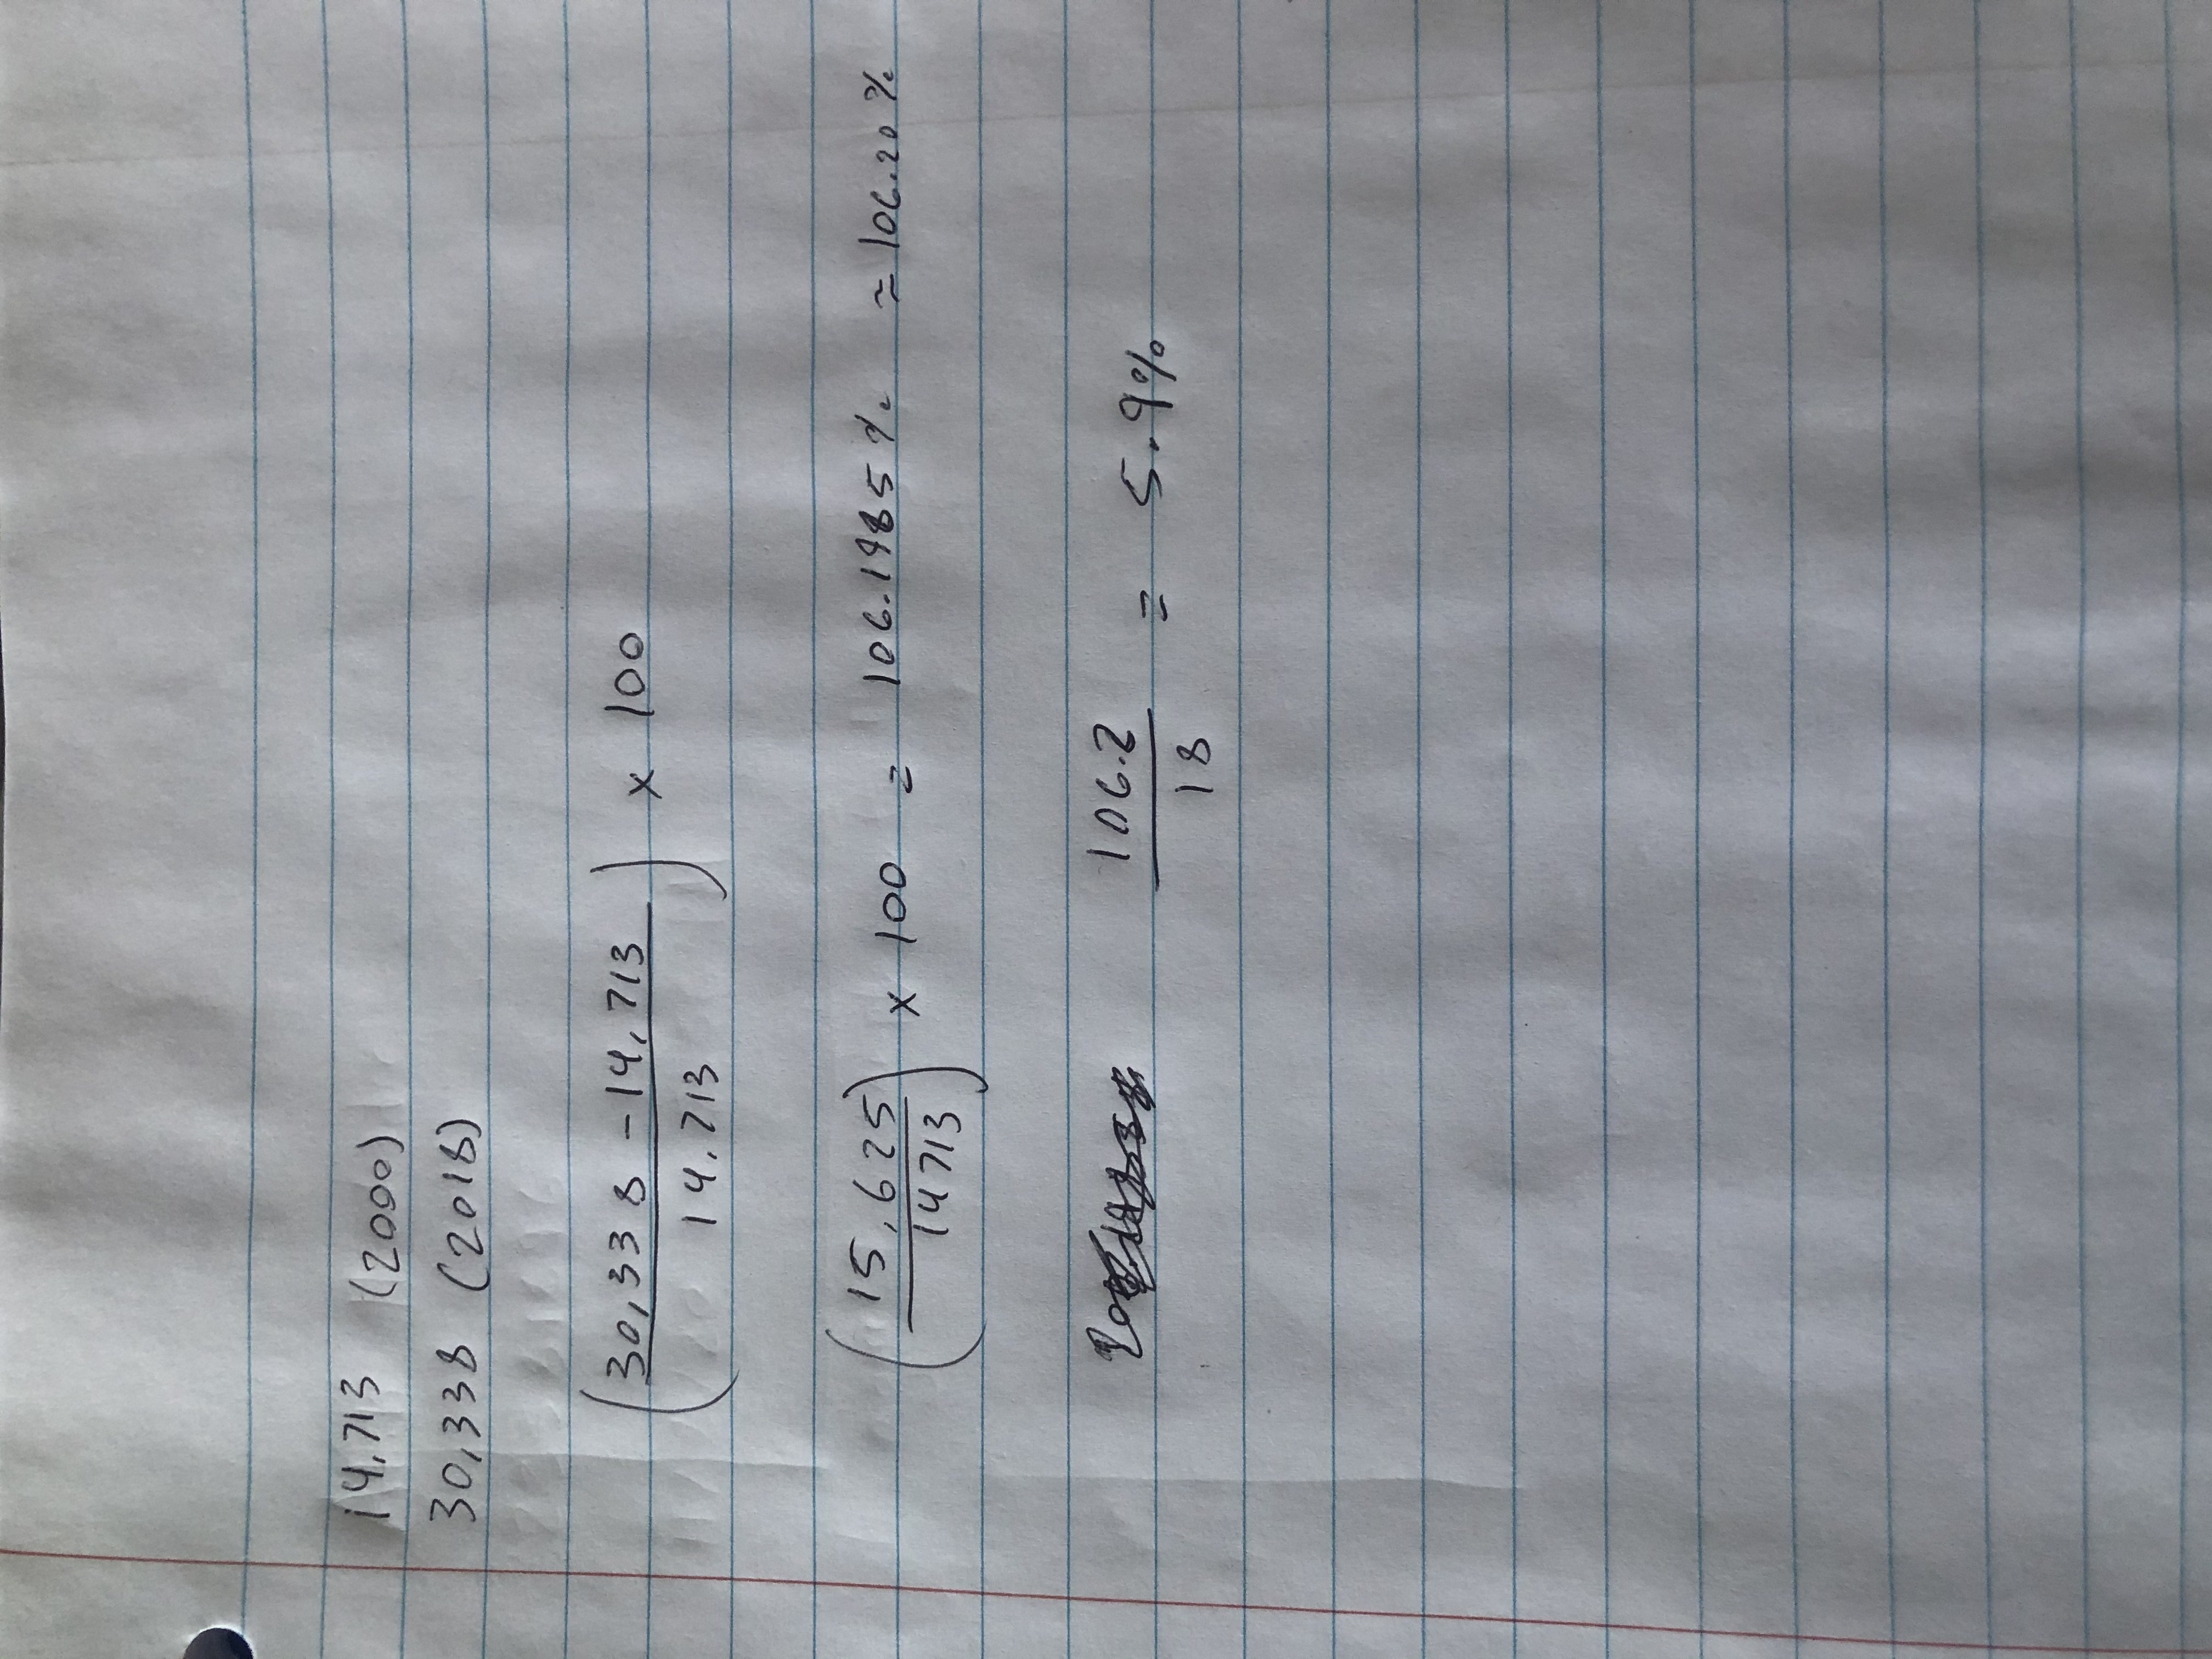 14,713 (2000)
30,338 (2018)
(30,338 - 14,713 / 14,713) x 100
(15,625 / 14713) x 100 = 106.1985% ≈ 106.20%
106.2 / 18 = 5.9%